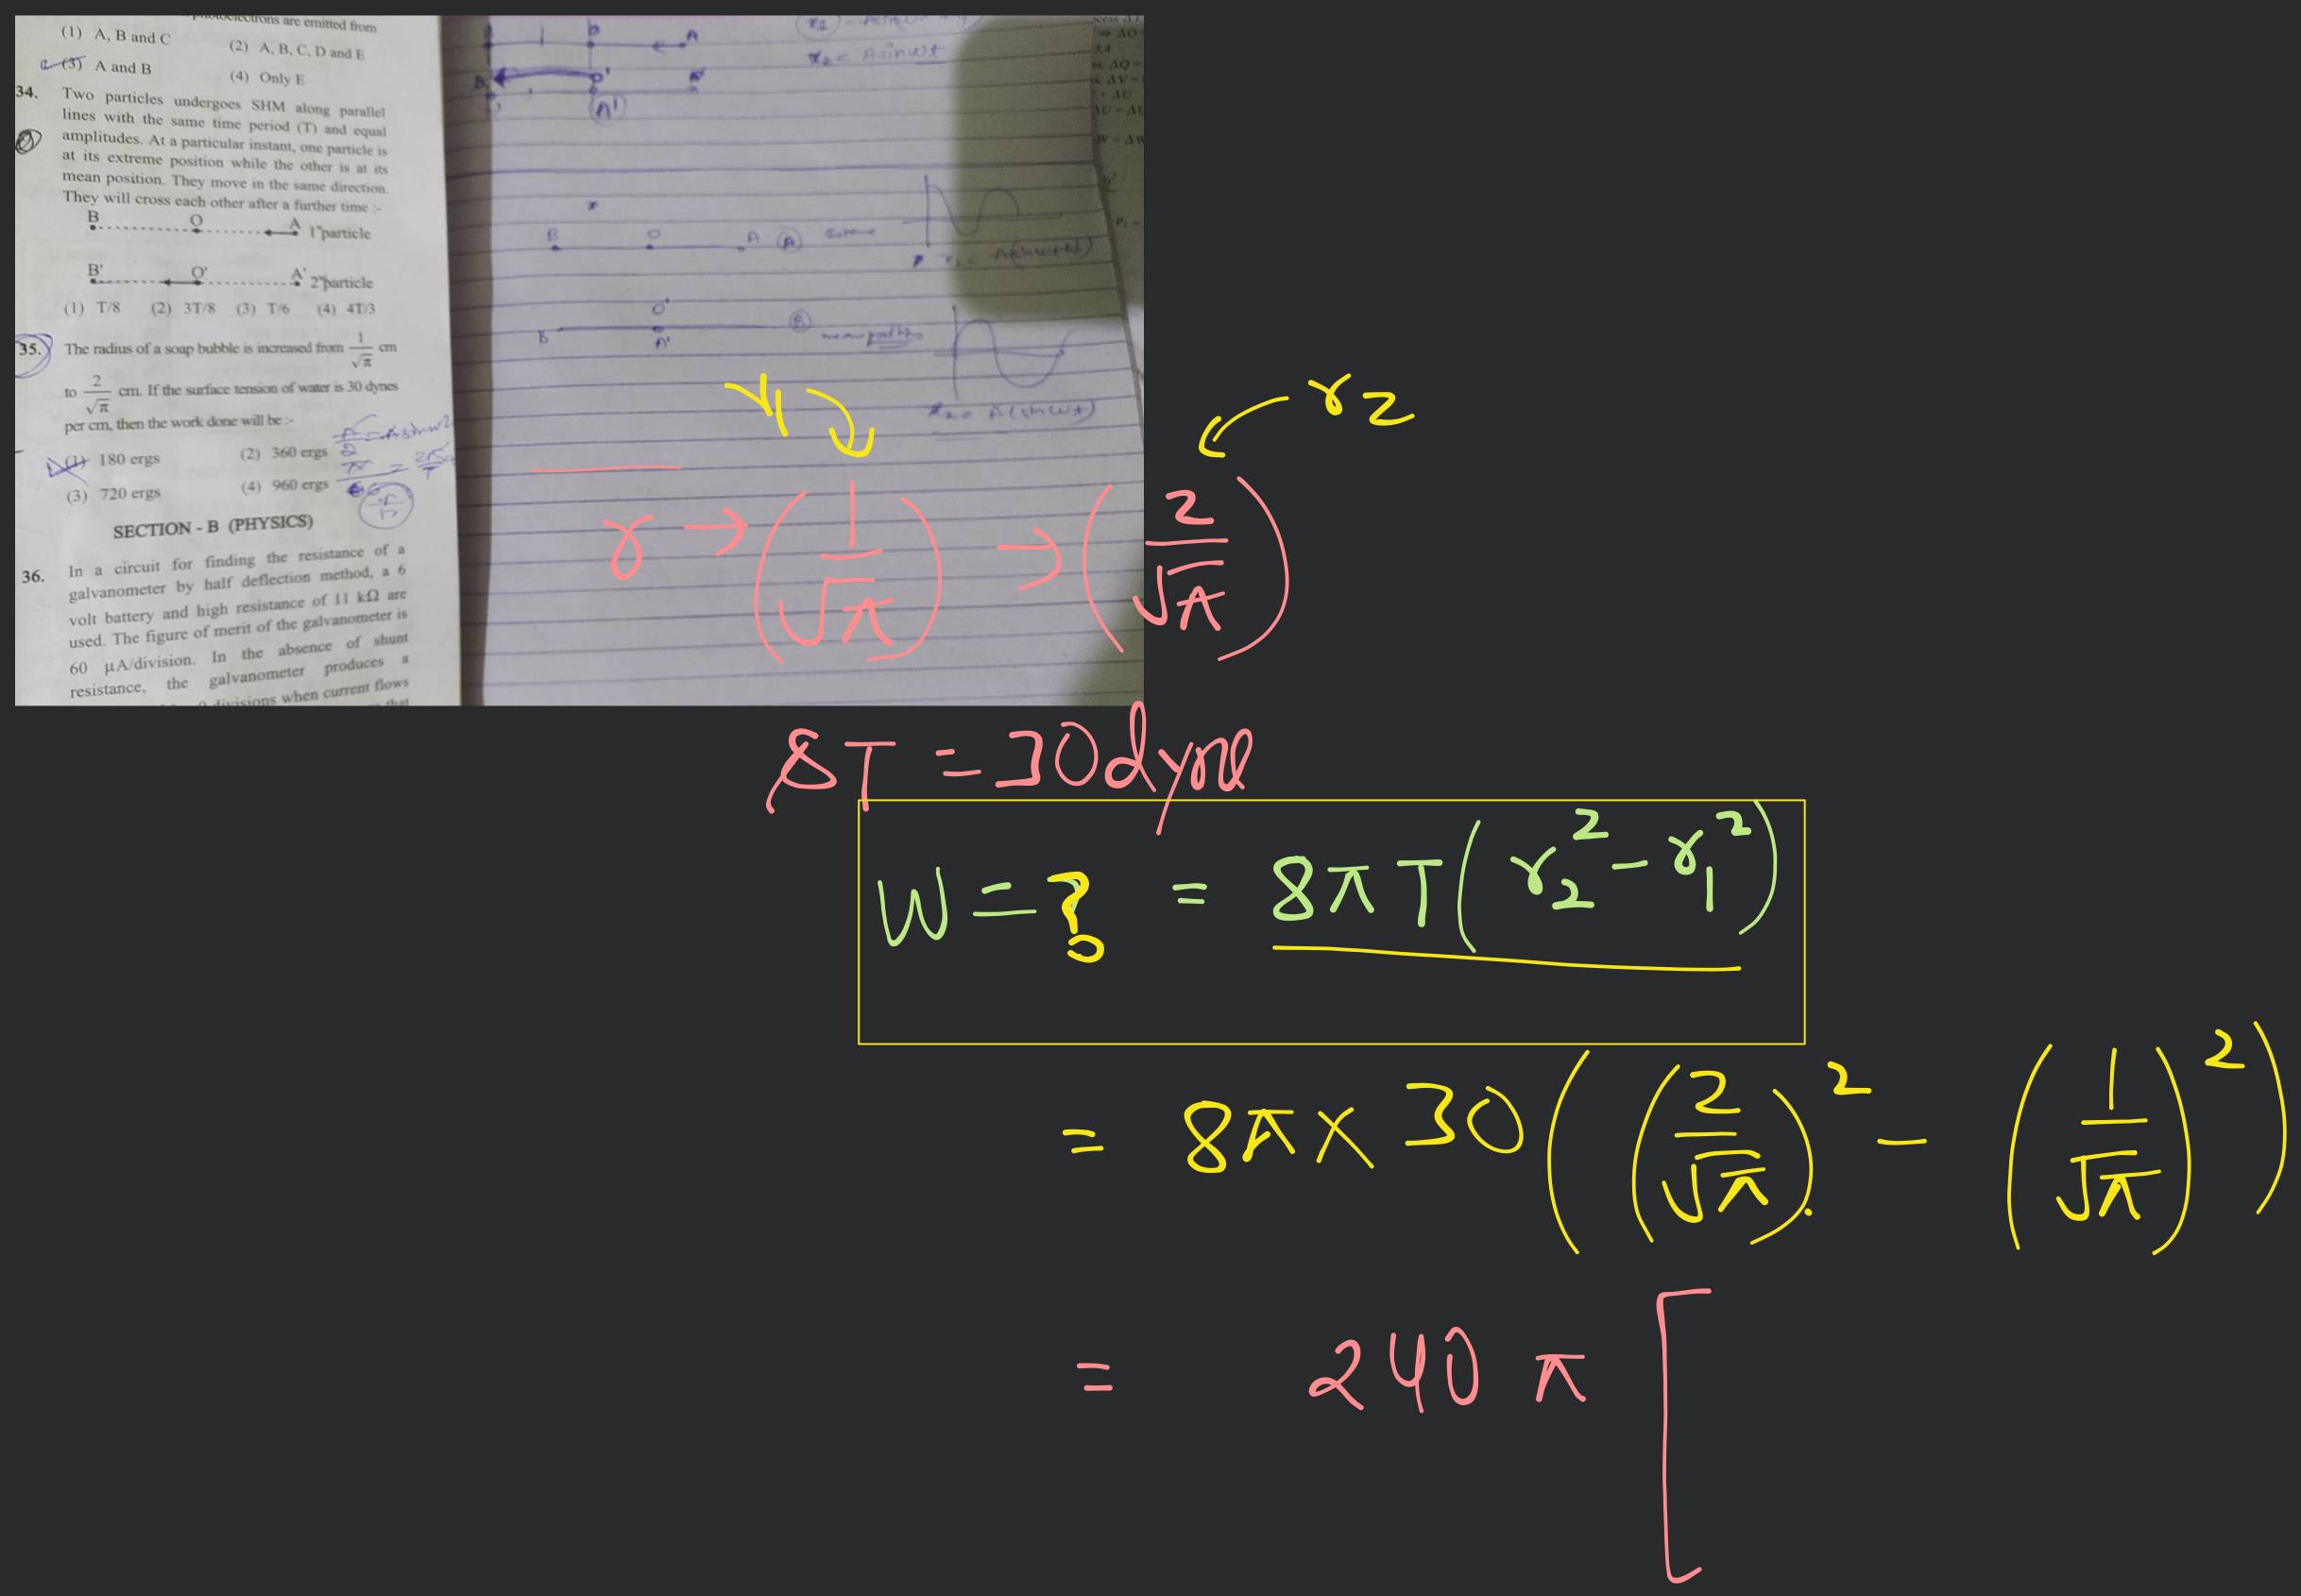 photoelectrons are emitted from
(1) A, B and C
(2) A, B, C, D and E
(3) A and B
(4) Only E
34. Two particles undergoes SHM along parallel
lines with the same time period (T) and equal
amplitudes. At a particular instant, one particle is
at its extreme position while the other is at its
mean position. They move in the same direction.
They will cross each other after a further time :-
B O A 1st particle
B' O' A' 2nd particle
(1) T/8 (2) 3T/8 (3) T/6 (4) 4T/3
35. The radius of a soap bubble is increased from 1/√π cm
to 2/√π cm. If the surface tension of water is 30 dynes
per cm, then the work done will be :-
(1) 180 ergs (2) 360 ergs
(3) 720 ergs (4) 960 ergs
SECTION - B (PHYSICS)
36. In a circuit for finding the resistance of a
galvanometer by half deflection method, a 6
volt battery and high resistance of 11 kΩ are
used. The figure of merit of the galvanometer is
60 μA/division. In the absence of shunt
resistance, the galvanometer produces a
divisions when current flows
that
A
x₂ = A sin ωt
B O' A'
A'
B O A A
B O' B
A'
x₂ = A(sin ωt)
r₁ r₂
r → (1/√π) → (2/√π)
ST = 30 dyne
W = ? = 8πT(r₂² - r₁²)
= 8π × 30((2/√π)² - (1/√π)²)
= 240 π [